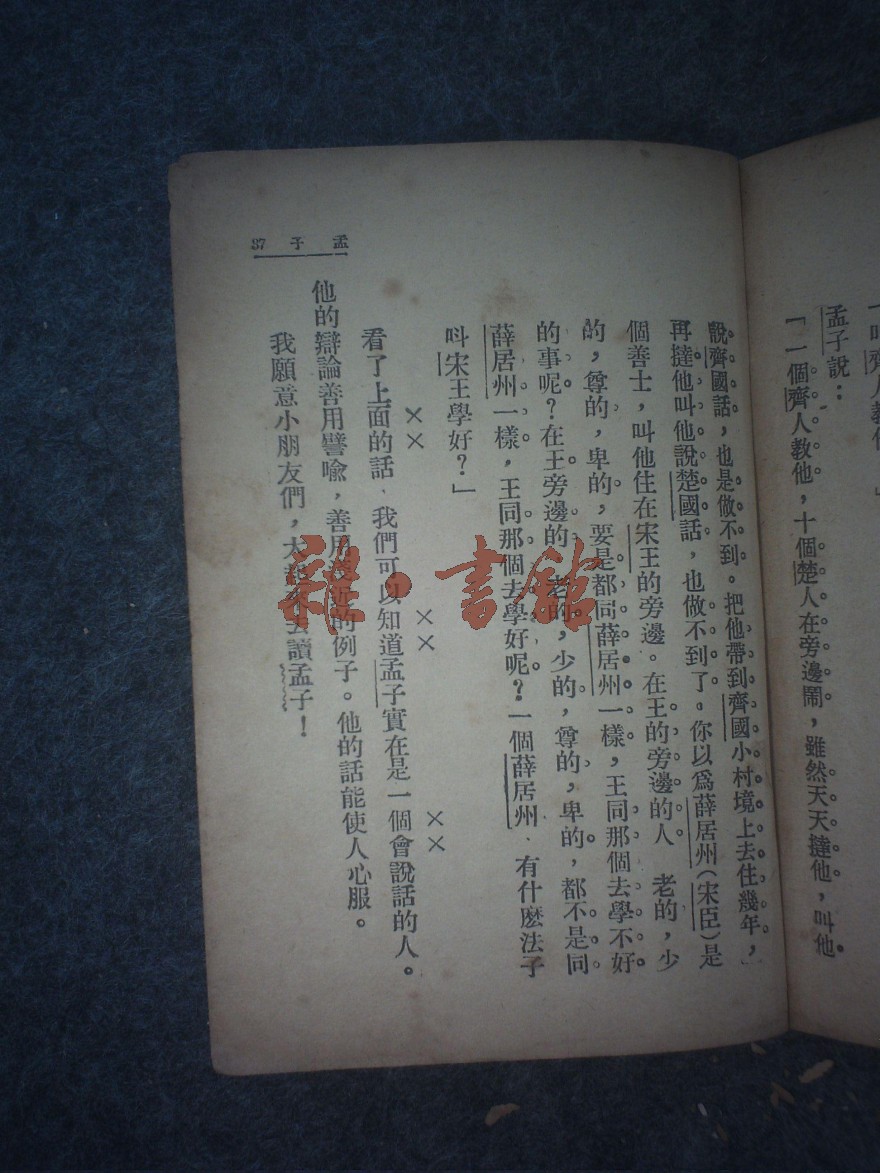 孟子說：
「一個齊人教他，十個楚人在旁邊鬧，雖然天天撻他，叫他
說齊國話，也是做不到。把他帶到齊國小村境上去住幾年，
再撻他叫他說楚國話，也做不到了。你以爲薛居州（宋臣）是
個善士，叫他住在宋王的旁邊。在王的旁邊的人 老的，少
的，尊的，卑的，要是都同薛居州一樣，王同那個去學不好
的事呢？在王旁邊的 老的，少的，尊的，卑的，都不是同
薛居州一樣，王同那個去學好呢？一個薛居州、有什麽法子
呌宋王學好？」
×× ×× ××
看了上面的話、我們可以知道孟子實在是一個會說話的人。
他的辯論善用譬喩，善用淺近的例子。他的話能使人心服。
我願意小朋友們，大起來去讀孟子！
孟子 37
雜·書館